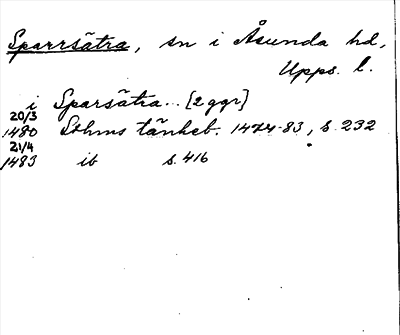 Sparrsätra, sn i Åsunda hd,
Upps. l.
i Sparsätra.. [2 ggr]
20/3
1480 Sthms tänkeb. 1474-83, s. 232
21/4
1483 ib s. 416